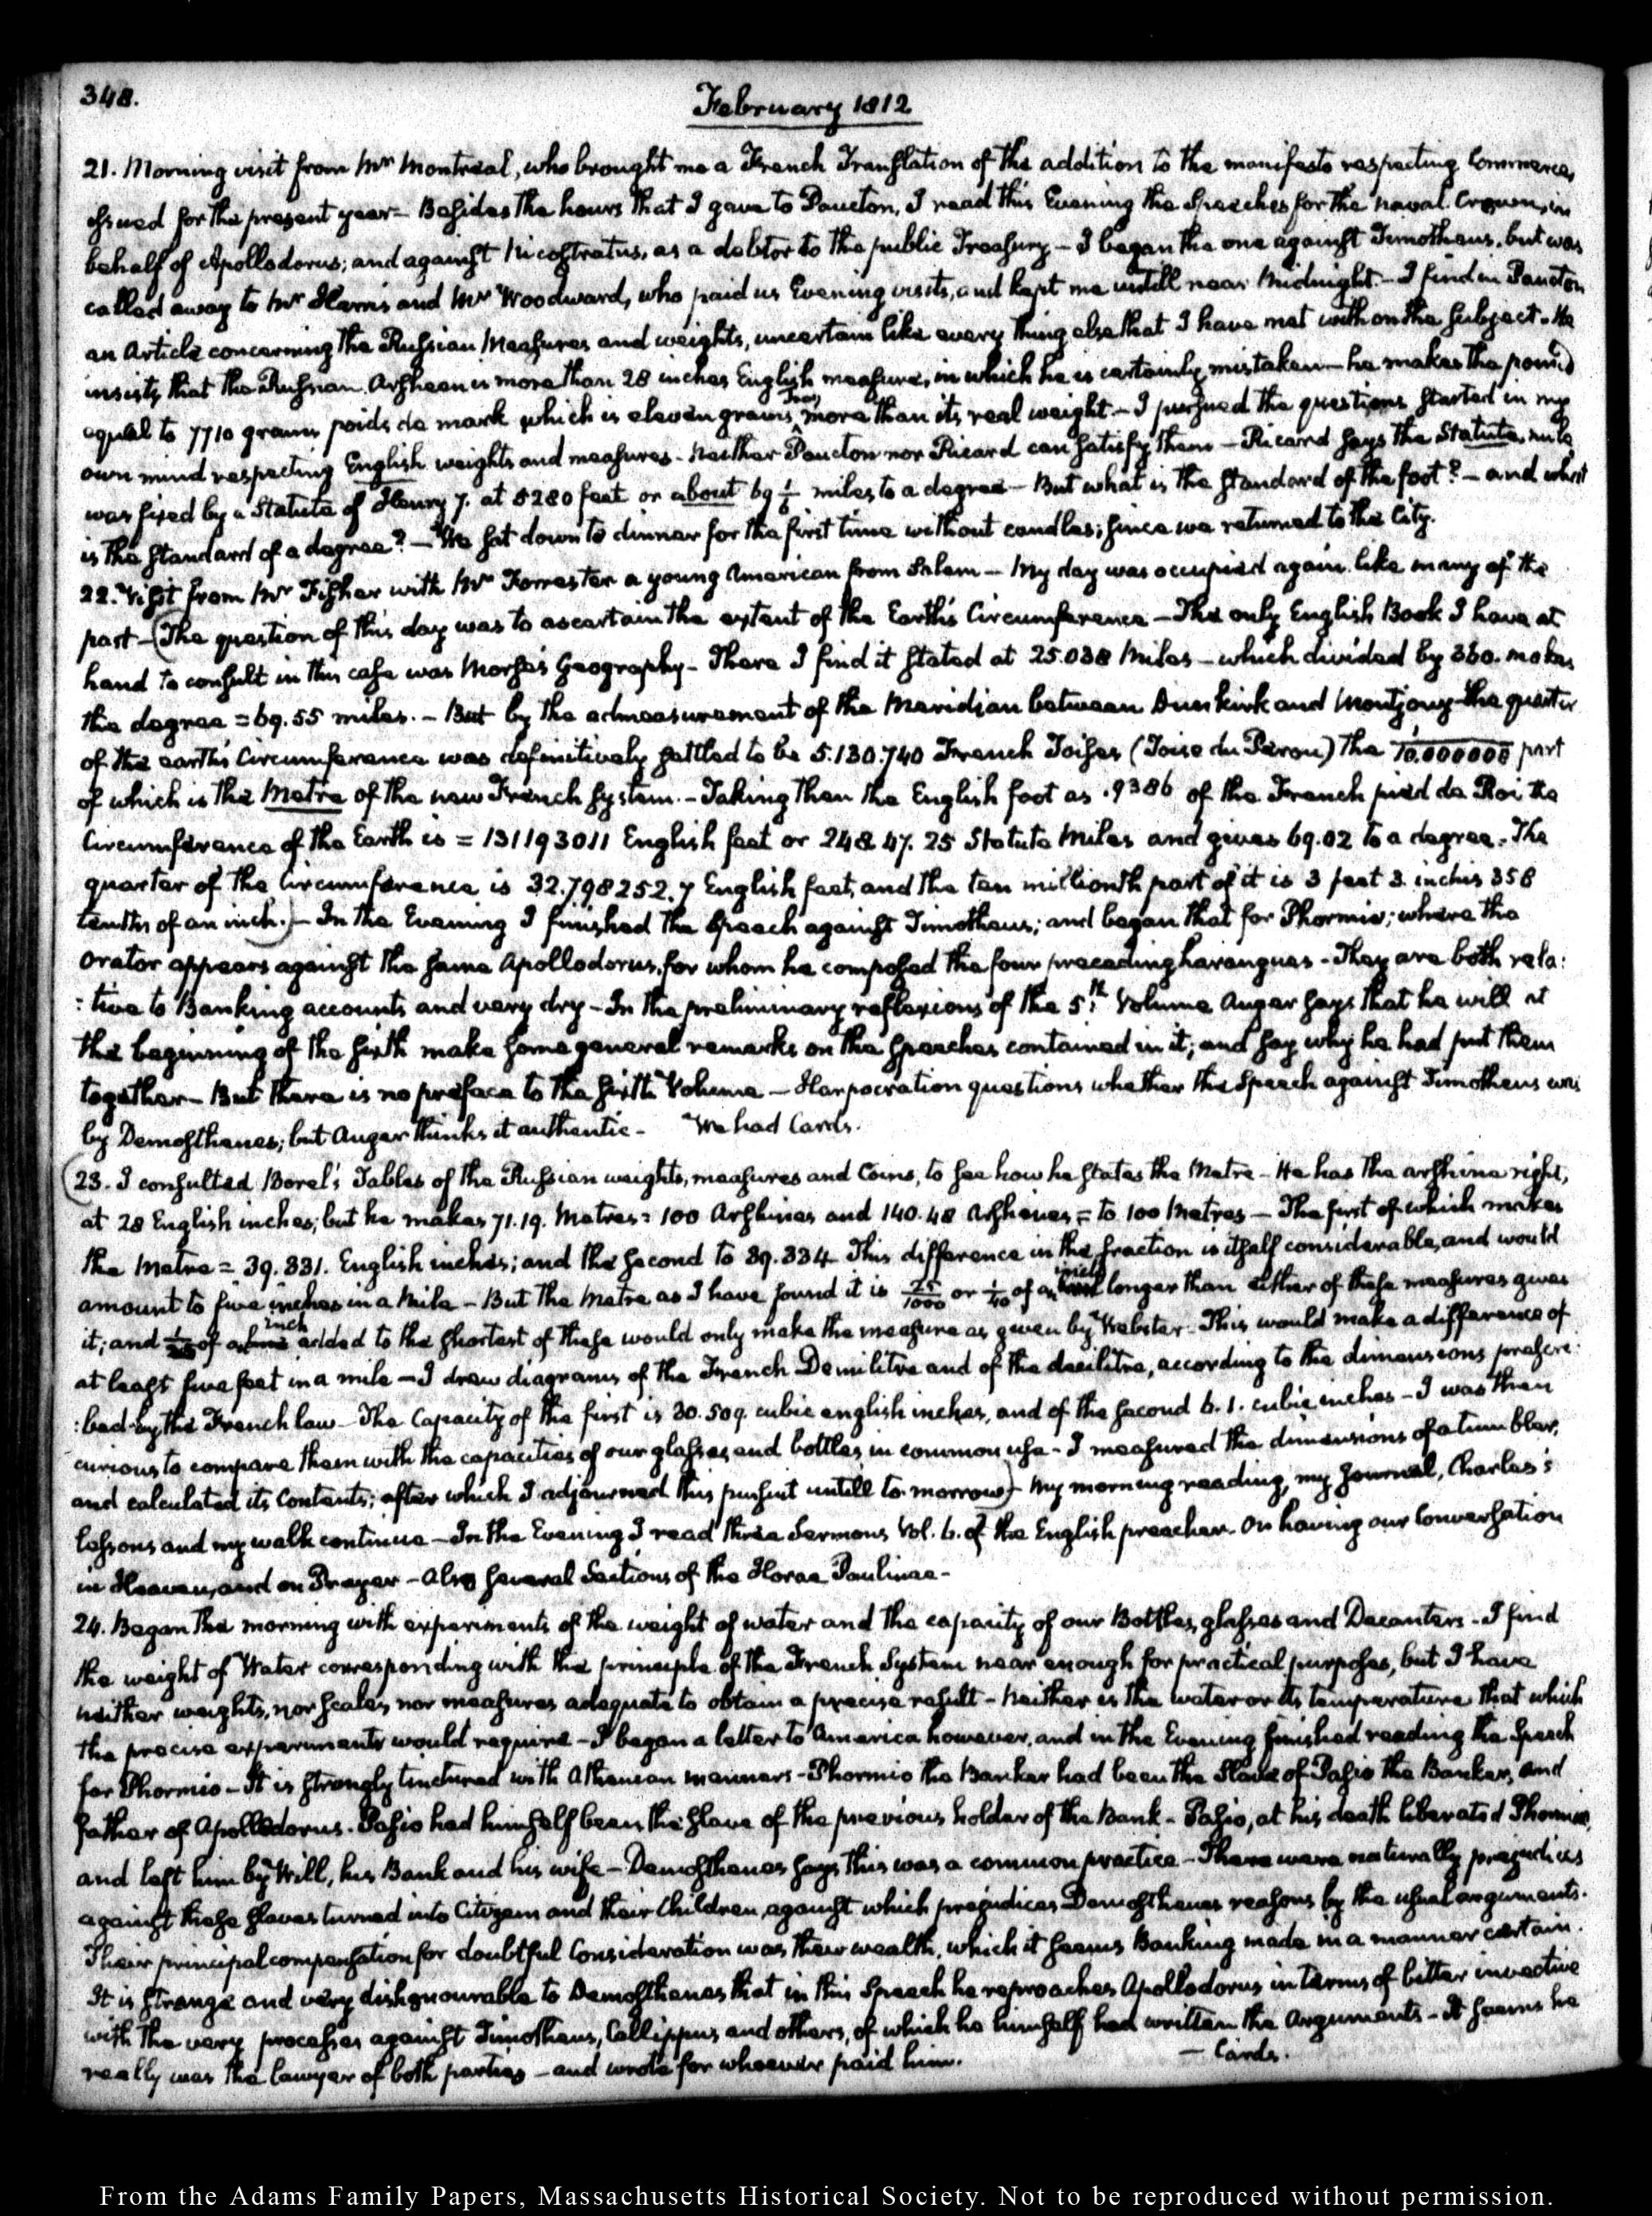 348.
February 1812
21. Morning visit from Mr Montréal, who brought me a French Translation of the addition to the manifesto respecting Commerce,
issued for the present year— Besides the hours that I gave to Paucton, I read this Evening the Speeches for the naval Crown, in
behalf of Apollodorus; and against Nicostratus, as a debtor to the public Treasury — I began the one against Timotheus, but was
called away to Mr Harris and Mr Woodward, who paid us Evening visits, and kept me untill near Midnight.— I find in Paucton
an Article concerning the Russian Measures and weights, uncertain like every thing else that I have met with on the subject. He
insists that the Russian Arsheen is more than 28 inches English measure, in which he is certainly mistaken— he makes the pound
equal to 7710 grains poids de mark which is eleven grains Troy more than its real weight.— I pursued the questions started in my
own mind respecting English weights and measures— Neither Paucton nor Ricard can satisfy them — Ricard says the Statute mile
was fixed by a Statute of Henry 7. at 5280 feet or about 69 1/6 miles to a degree— But what is the standard of the foot? — and what
is the standard of a degree? — We sat down to dinner for the first time without candles; since we returned to the City.
22. Visit from Mr Fisher with Mr Forrester a young American from Salem — My day was occupied again like many of the
past—(The question of this day was to ascertain the extent of the Earth's Circumference — The only English Book I have at
hand to consult in this case was Morse's Geography— There I find it stated at 25.038 Miles — which divided by 360. makes
the degree = 69.55 miles.— But by the admeasurement of the Meridian between Dunkirk and Montjouy the quarter
of the earth's Circumference was definitively settled to be 5.130.740 French Toises (Toise du Pérou) the 10.000000 part
of which is the Metre of the new French system.— Taking then the English foot as .9386 of the French pied de Roi the
Circumference of the Earth is = 131193011 English feet or 248.47.25 Statute Miles and gives 69.02 to a degree. The
quarter of the Circumference is 32.798252.7 English feet, and the ten millionth part of it is 3 feet 3. inches 358
tenths of an inch.)— In the Evening I finished the Speech against Timotheus; and began that for Phormio; where the
Orator appears against the same Apollodorus, for whom he composed the four preceding harangues— They are both rela:
:tive to Banking accounts and very dry— In the preliminary reflexions of the 5th Volume Auger says that he will at
the beginning of the sixth make some general remarks on the speeches contained in it; and say why he had put them
together— But there is no preface to the sixth Volume — Harpocration questions whether the Speech against Timotheus was
by Demosthenes; but Auger thinks it authentic— We had Cards.
(23. I consulted Borel's Tables of the Russian weights, measures and Coins, to see how he states the Metre— He has the arshine right,
at 28 English inches; but he makes 71.19. Metres = 100 Arshines and 140.48 Arshines = to 100 Metres — The first of which makes
the Metre = 39.331. English inches; and the second to 39.334 This difference in the fraction is itself considerable, and would
amount to five inches in a Mile— But the Metre as I have found it is 25/1000 or 1/40 of an inch longer than either of these measures gives
it; and of an inch added to the shortest of these would only make the measure as given by Webster— This would make a difference of
at least five feet in a mile — I drew diagrams of the French Demilitre and of the decilitre, according to the dimensions prescri:
:bed by the French law— The Capacity of the first is 30.509. cubic english inches, and of the second 6.1. cubic inches— I was then
curious to compare them with the capacities of our glasses and bottles in common use— I measured the dimensions of a tumbler,
and calculated its Contents; after which I adjourned this pursuit untill to-morrow)— My morning reading, my Journal, Charles's
lessons and my walk continue— In the Evening I read three Sermons Vol. 6. of the English preacher. On having our Conversation
in Heaven, and on Prayer— Also several Sections of the Horae Paulinae—
24. Began the morning with experiments of the weight of water and the capacity of our Bottles, glasses and Decanters— I find
the weight of Water corresponding with the principle of the French System near enough for practical purposes, but I have
neither weights, nor scales, nor measures adequate to obtain a precise result— Neither is the water or its temperature that which
the precise experiments would require— I began a letter to America however, and in the Evening finished reading the Speech
for Phormio— It is strongly tinctured with Athenian manners— Phormio the Banker had been the Slave of Pasio the Banker, and
father of Apollodorus. Pasio had himself been the slave of the previous holder of the Bank— Pasio, at his death liberated Phormio,
and left him by Will, his Bank and his wife— Demosthenes says this was a common practice— There were naturally prejudices
against these slaves turned into Citizens and their Children, against which prejudices Demosthenes reasons by the usual arguments.
Their principal compensation for doubtful Consideration was their wealth, which it seems Banking made in a manner certain.
It is strange and very dishonourable to Demosthenes that in this Speech he reproaches Apollodorus in terms of bitter invective
with the very processes against Timotheus, Callippus and others, of which he himself had written the Arguments— It seems he
really was the lawyer of both parties — and wrote for whoever paid him. — Cards.
From the Adams Family Papers, Massachusetts Historical Society. Not to be reproduced without permission.